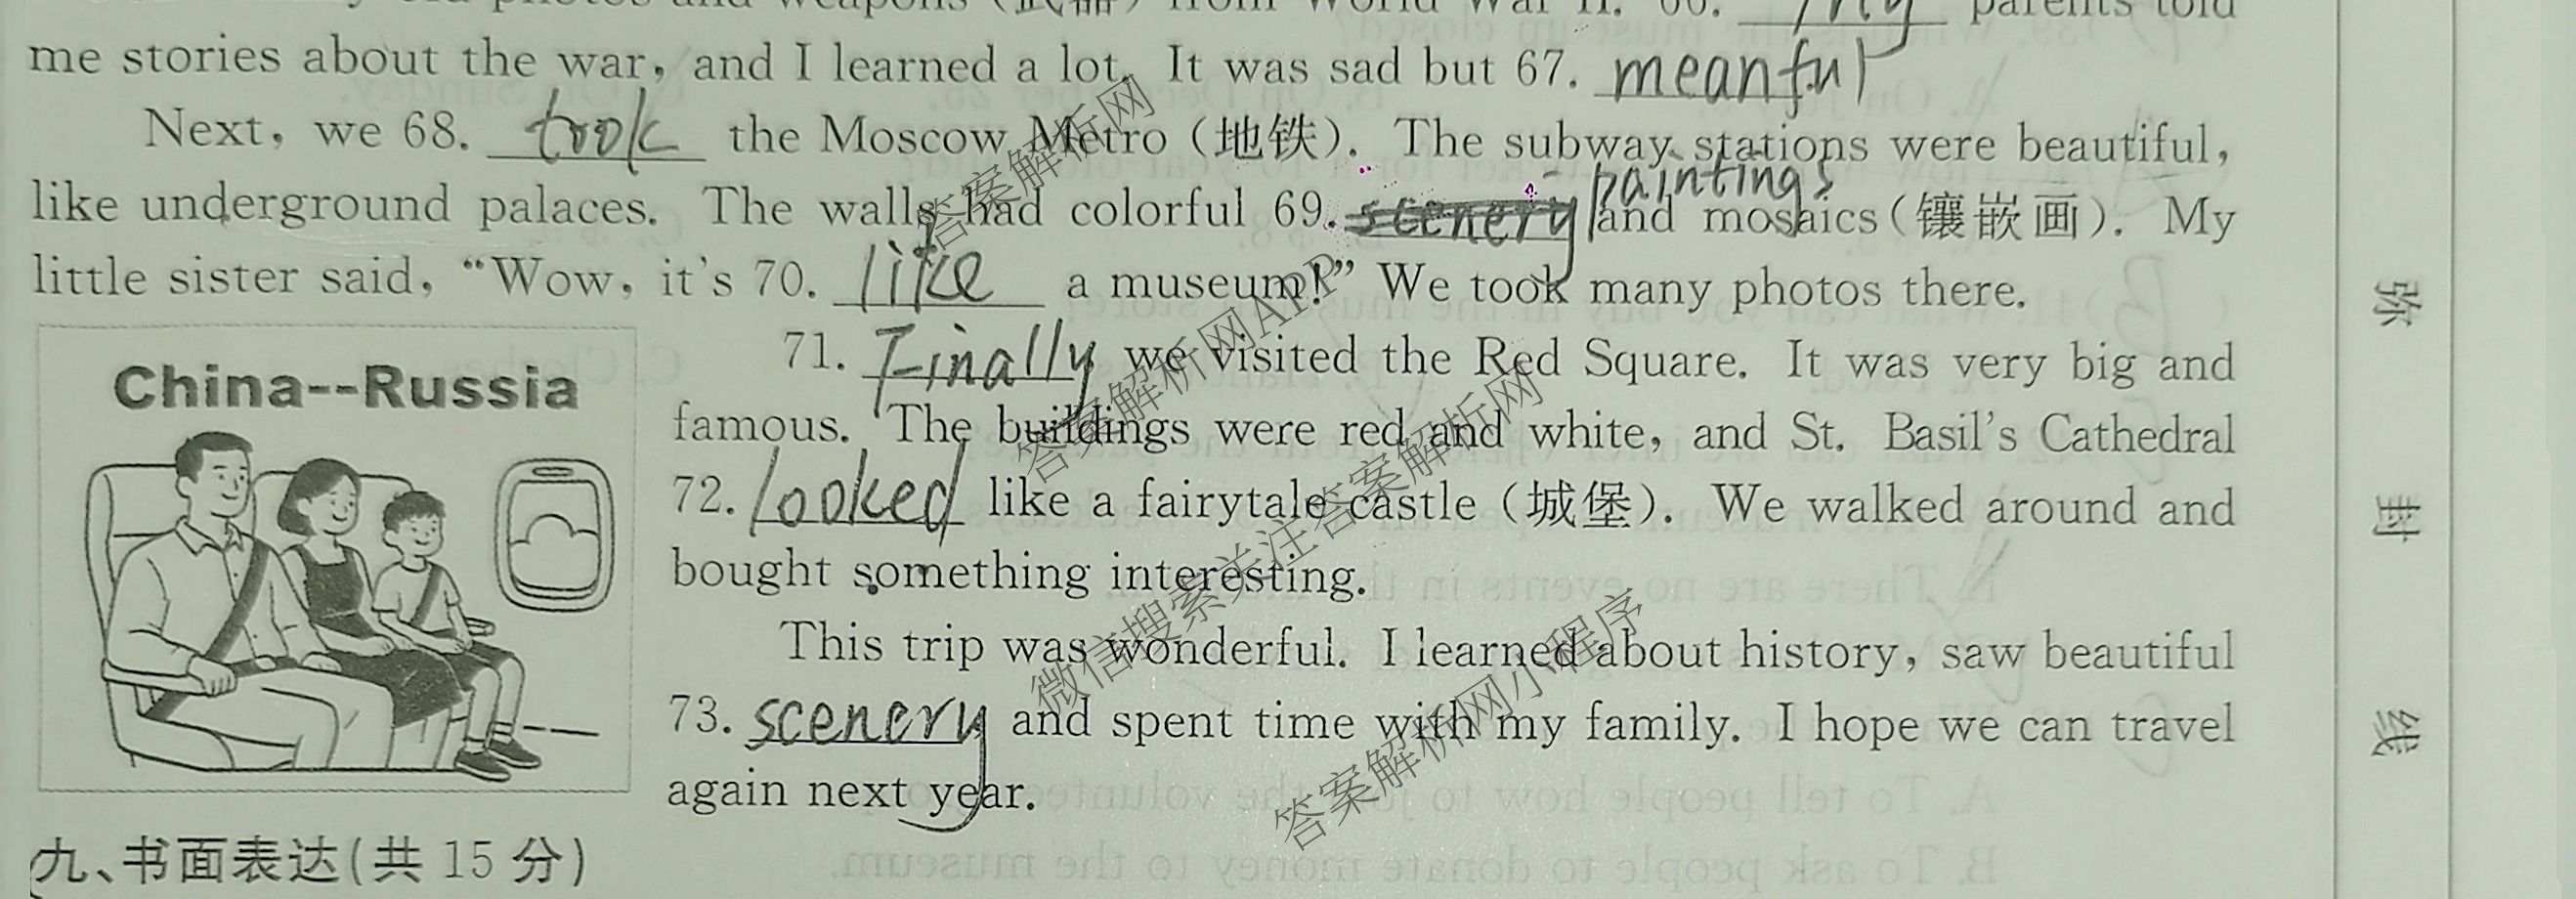 me stories about the war, and I learned a lot. It was sad but 67. meanful
Next, we 68. took the Moscow Metro (地铁). The subway stations were beautiful,
paintings
like underground palaces. The walls had colorful 69. scenery and mosaics(镶嵌画). My
little sister said, “Wow, it's 70. like a museum!” We took many photos there.
71. Finally we visited the Red Square. It was very big and
China--Russia
famous. The buildings were red and white, and St. Basil's Cathedral
72. looked like a fairytale castle (城堡). We walked around and
bought something interesting.
This trip was wonderful. I learned about history, saw beautiful
73. scenery and spent time with my family. I hope we can travel
again next year.
九、书面表达(共 15 分)
弥
封
线
答案解析网
答案解析网APP
微信搜索关注答案解析网
答案解析网小程序